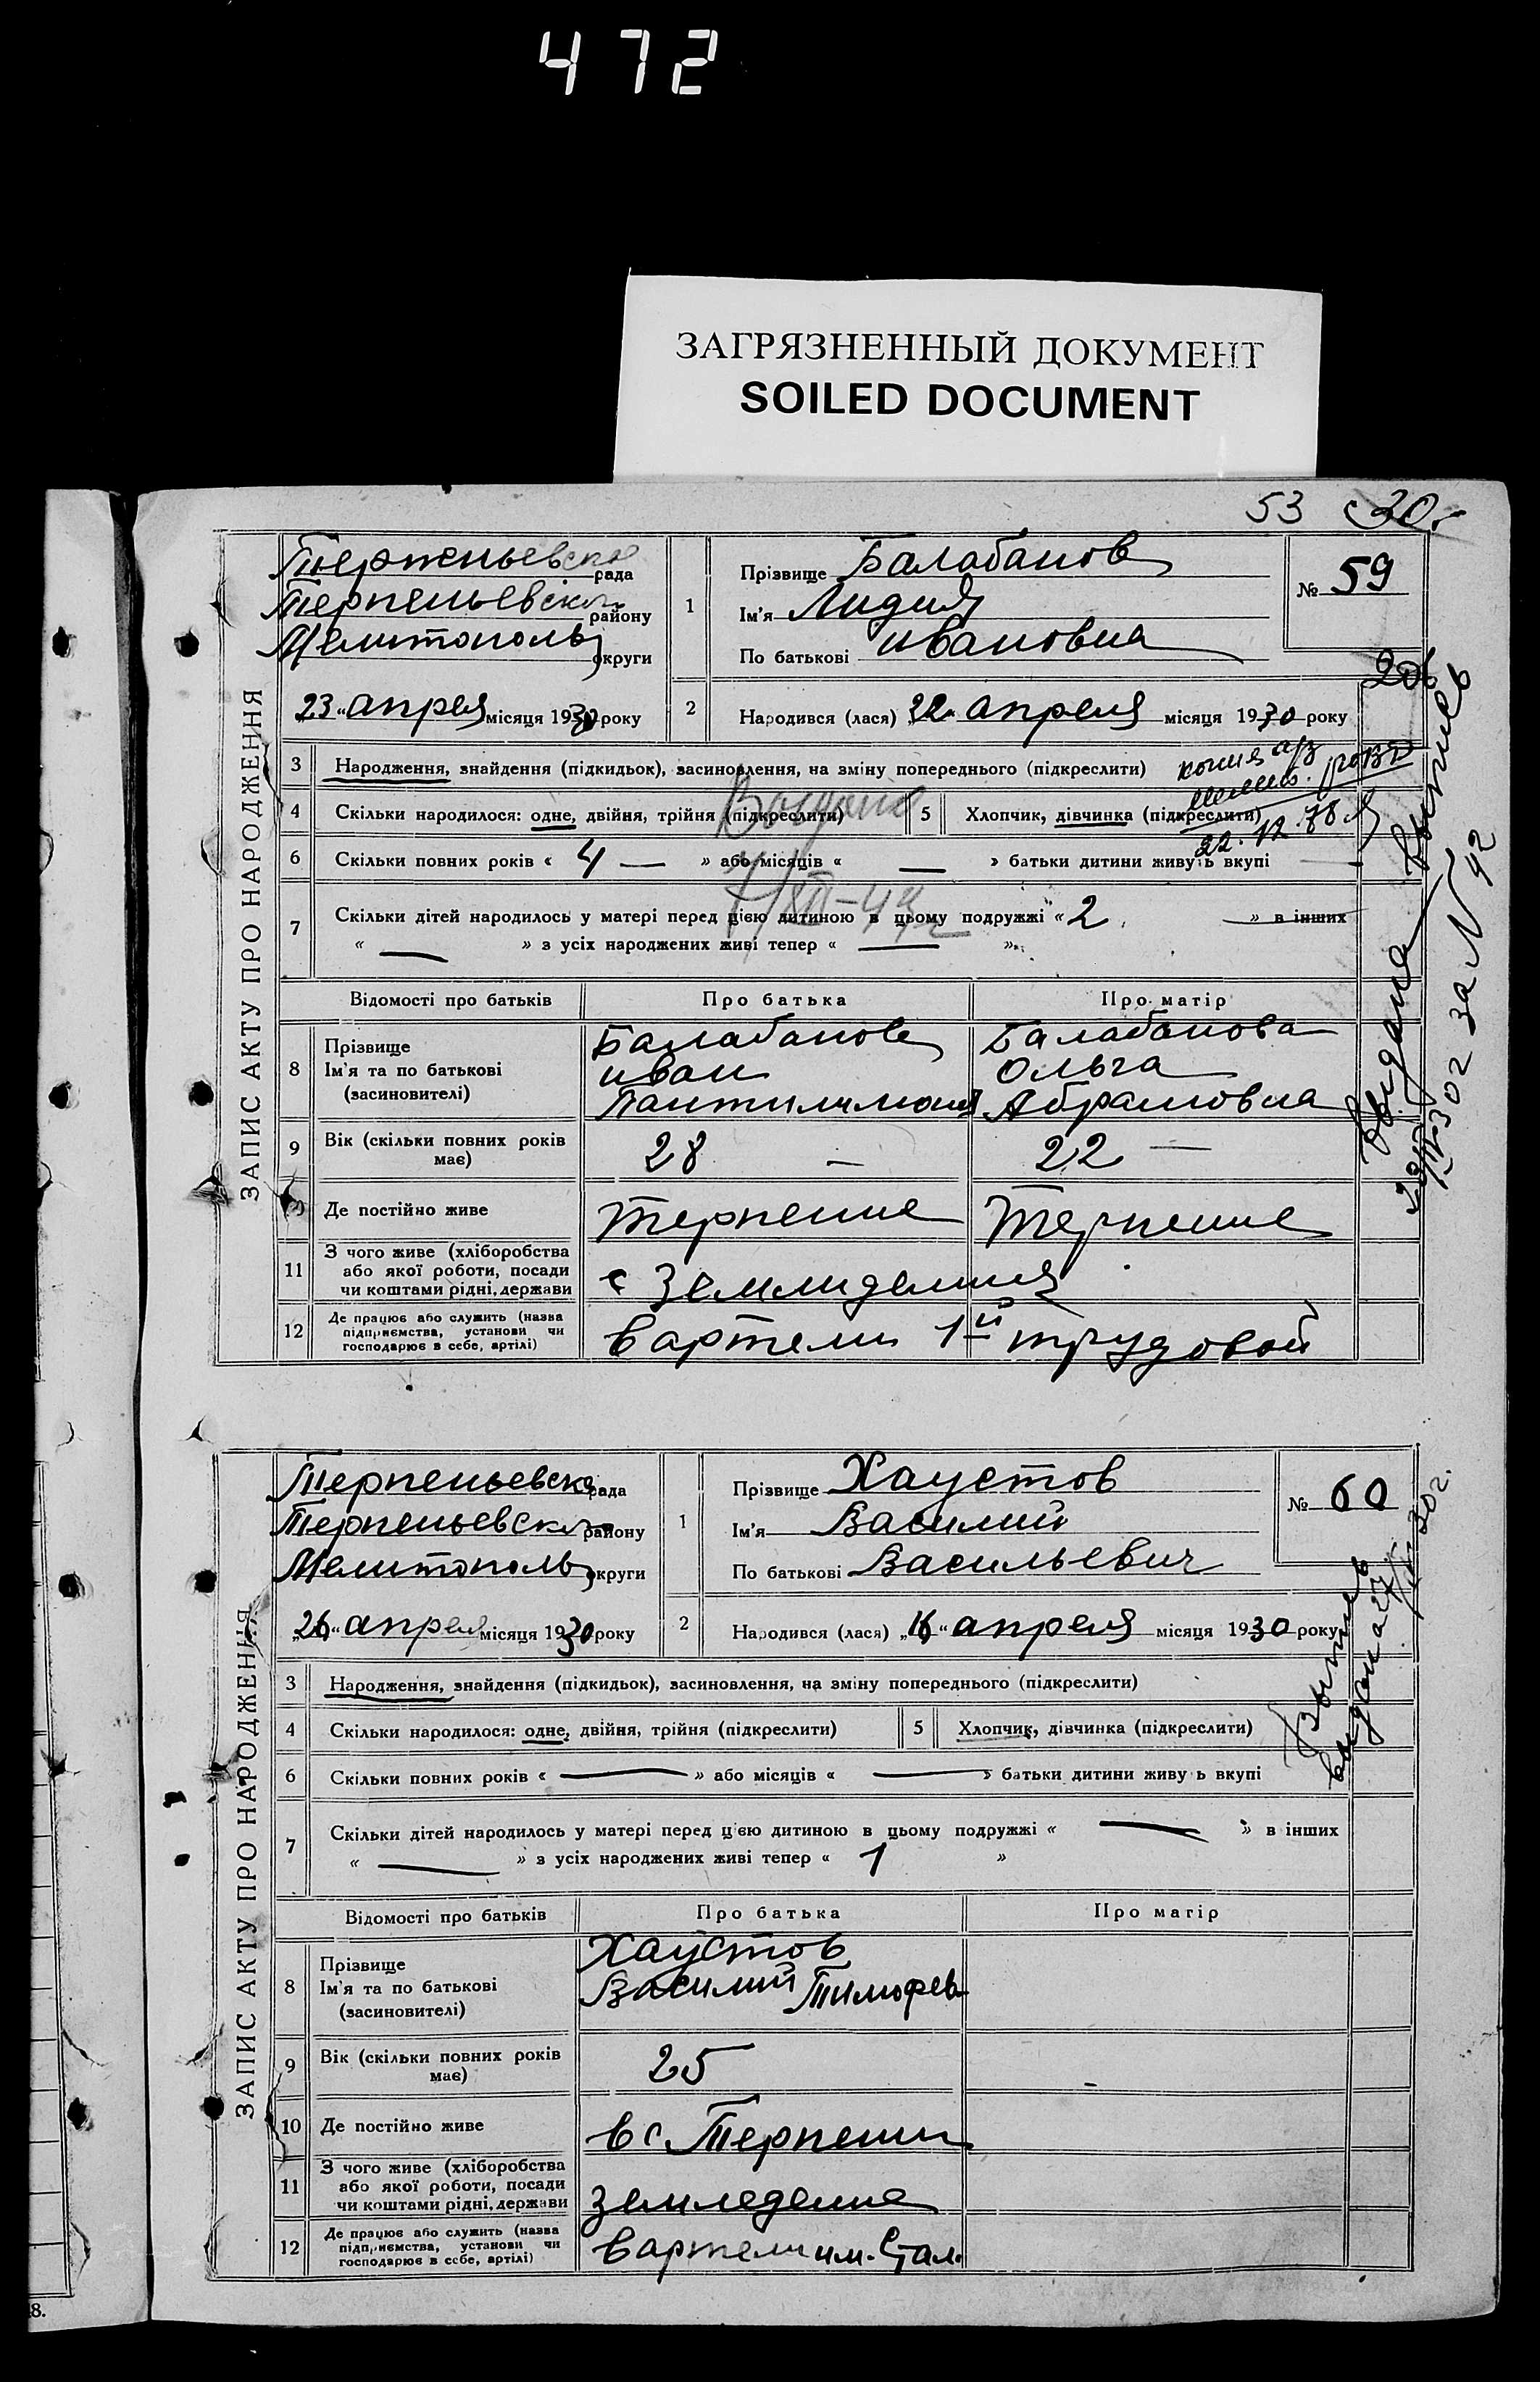 472
ЗАГРЯЗНЕННЫЙ ДОКУМЕНТ
SOILED DOCUMENT
53
30
ЗАПИС АКТУ ПРО НАРОДЖЕННЯ
Терпеньевская рада
Терпеньевского району
Мелитополь округи
23 „апреля місяця 1930 року
1 Прізвище Балабанов
Ім'я Лидия
По батькові Ивановна
№ 59
2 Народився (лася) „22„ апреля місяця 1930 року
3 Народження, знайдення (підкидьок), засиновлення, на зміну попереднього (підкреслити)
4 Скільки народилося: одне, двійня, трійня (підкреслити) 5 Хлопчик, дівчинка (підкреслити)
22.12.78
6 Скільки повних років « 4 — » або місяців « — » батьки дитини живуть вкупі
7 Скільки дітей народилось у матері перед цією дитиною в цьому подружжі « 2 » в інших
« — » з усіх народжених живі тепер « — ».
Відомості про батьків Про батька Про матір
8 Прізвище Балабанов Балабанова
Ім'я та по батькові Иван Ольга
(засновителі) Пантилимон Абрамовна
9 Вік (скільки повних років має) 28 — 22 —
Де постійно живе Терпение Терпение
11 З чого живе (хліборобства
або якої роботи, посади
чи коштами рідні, держави с Земмиделия
12 Де працює або служить (назва
підприємства, установи чи
господарює в себе, артілі) в артели 1й трудовой
Выдана выпись
30 г за N 42
ЗАПИС АКТУ ПРО НАРОДЖЕННЯ
Терпеньевска рада
Терпеньевско району
Мелитополь округи
„26„ апреля місяця 1930 року
1 Прізвище Хаустов
Ім'я Василий
По батькові Васильевич
№ 60
2 Народився (лася) „16„ апреля місяця 1930 року
3 Народження, знайдення (підкидьок), засиновлення, на зміну попереднього (підкреслити)
4 Скільки народилося: одне, двійня, трійня (підкреслити) 5 Хлопчик, дівчинка (підкреслити)
6 Скільки повних років « — » або місяців « — » батьки дитини живу ь вкупі
7 Скільки дітей народилось у матері перед цією дитиною в цьому подружжі « — » в інших
« — » з усіх народжених живі тепер « 1 »
Відомості про батьків Про батька Про матір
8 Прізвище Хаустов
Ім'я та по батькові Василий Тимофев
(засиновителі)
9 Вік (скільки повних років має) 25
10 Де постійно живе в с. Терпении
11 З чого живе (хліборобства
або якої роботи, посади
чи коштами рідні, держави земледелие
12 Де працює або служить (назва
підприємства, установи чи
господарює в себе, артілі) в артели им. Стал.
Выпись
выдана 27
30 г.